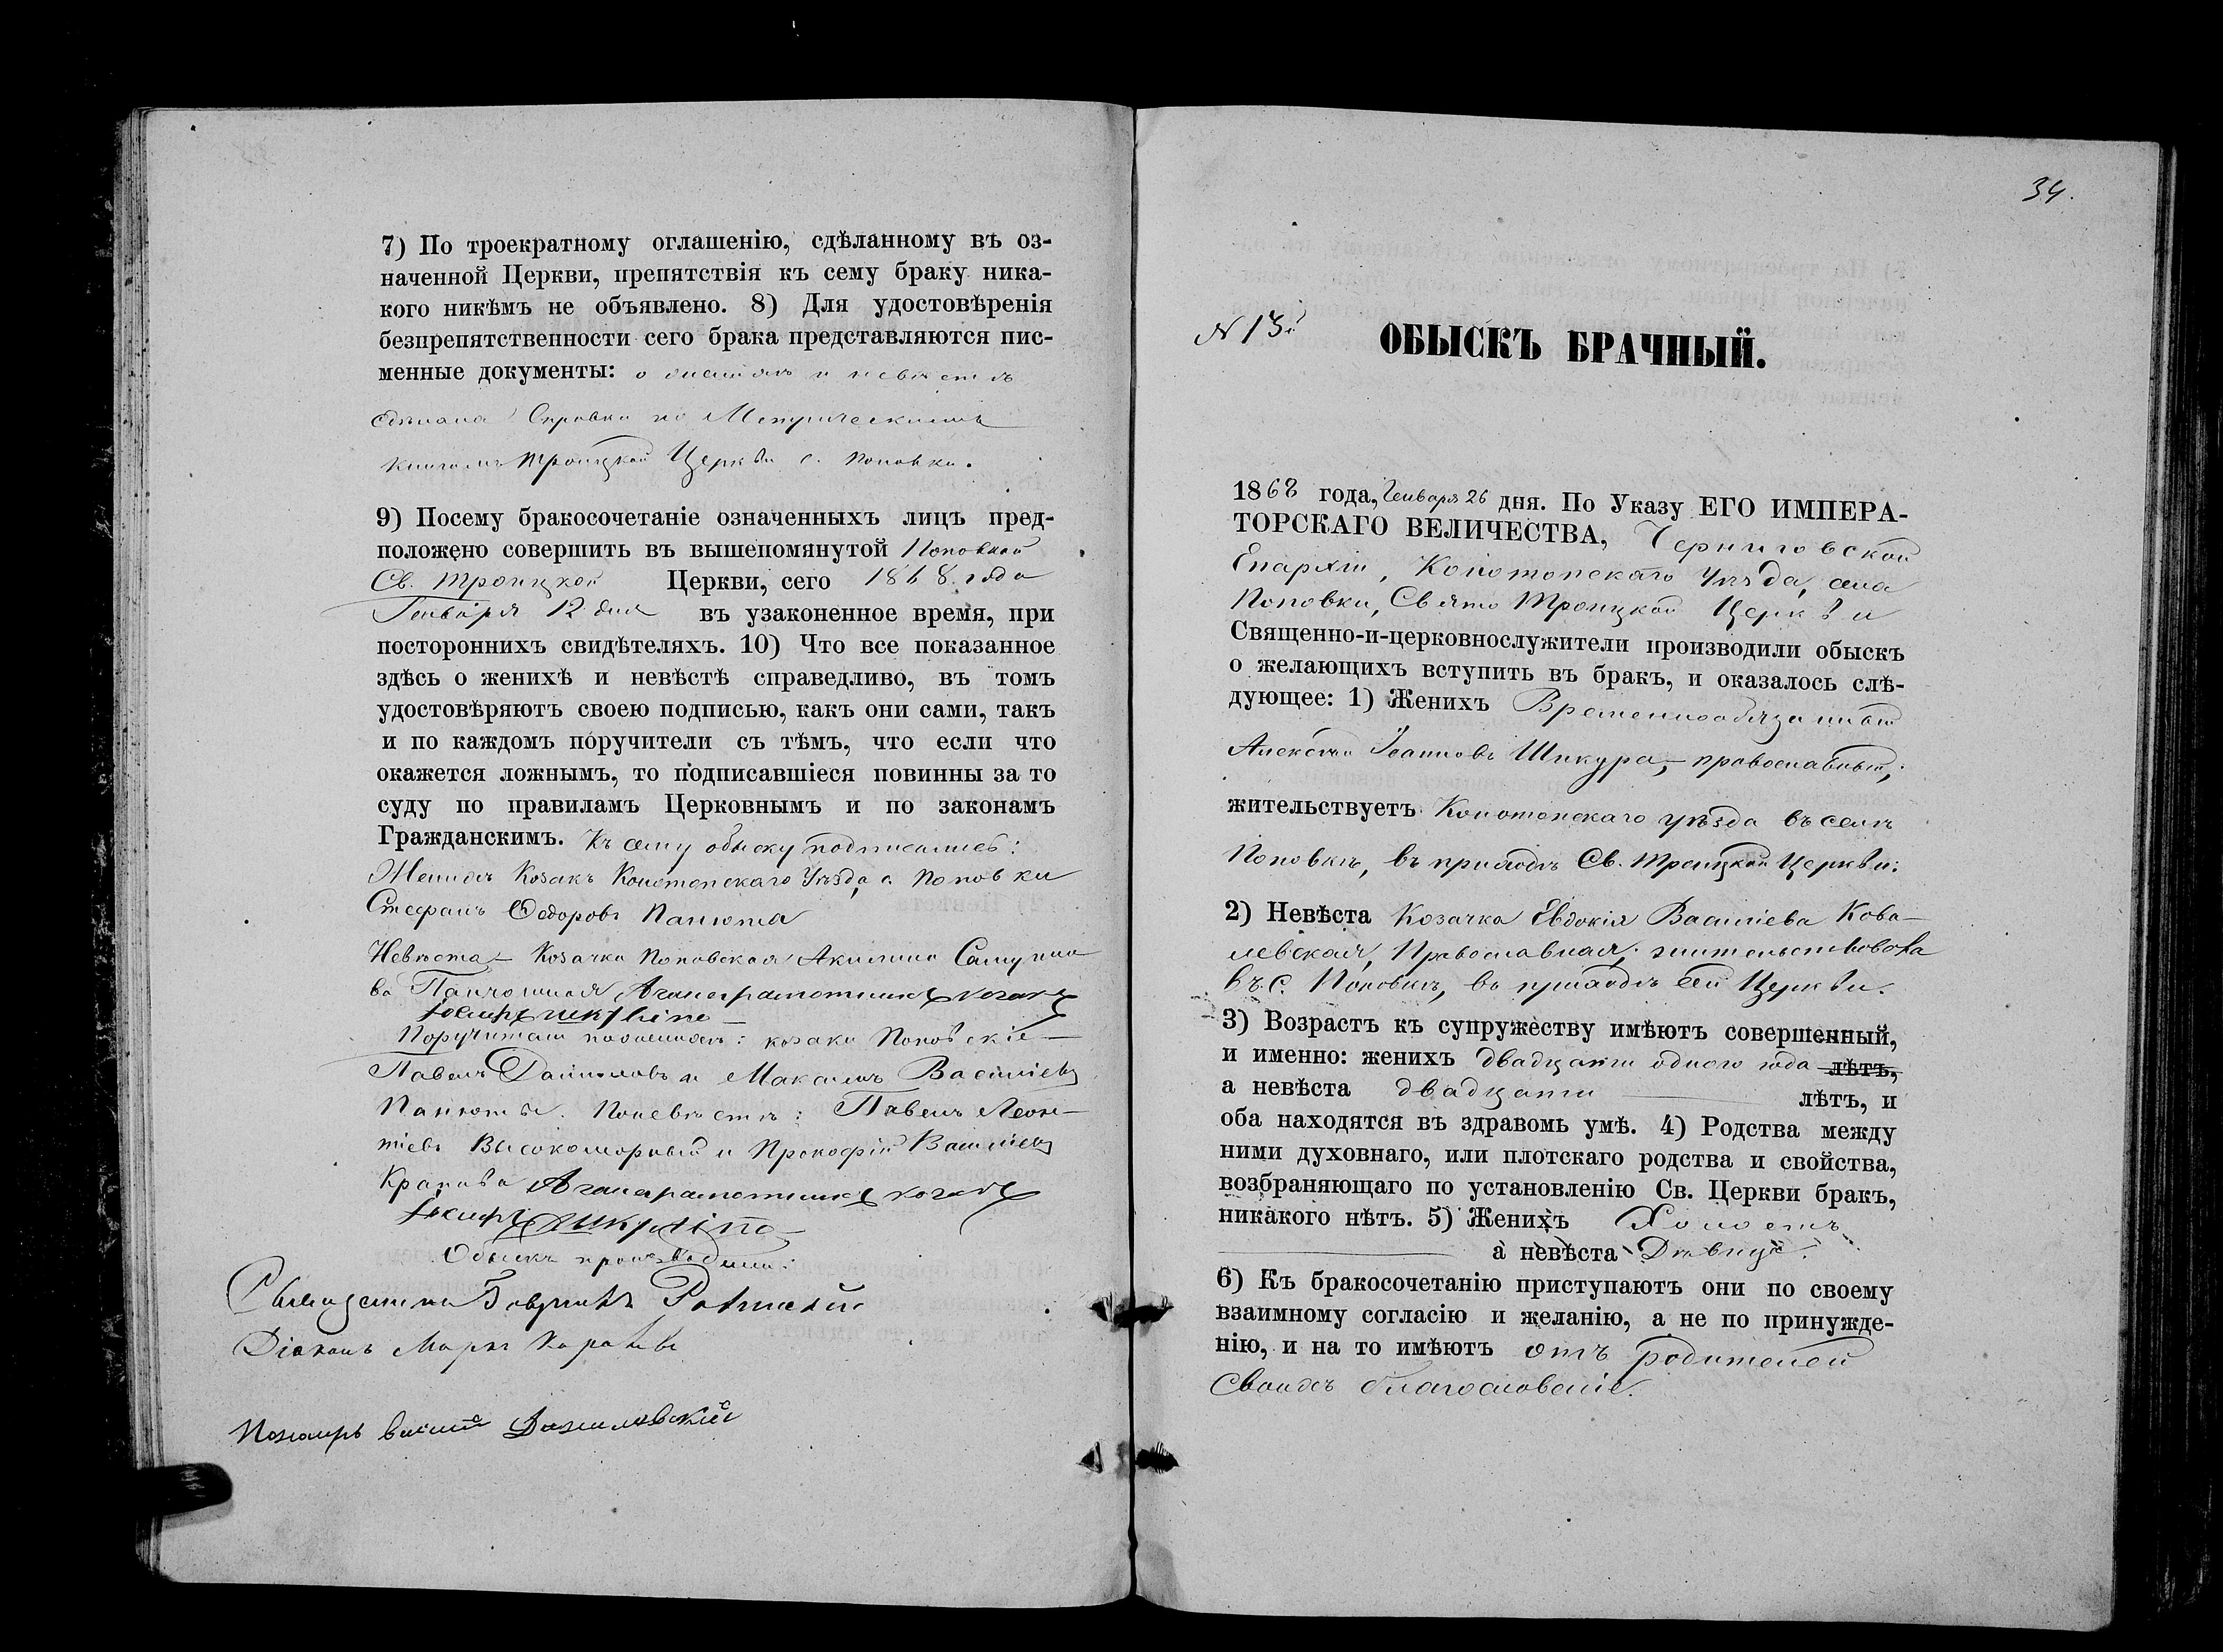 7) По троекратному оглашенію, сдѣланному въ оз-
наченной Церкви, препятствія къ сему браку ника-
кого никѣмъ не объявлено. 8) Для удостовѣренія
безпрепятственности сего брака представляются пис-
менные документы: о женихѣ и невѣстѣ
сдѣлана Справка по Метрическимъ
книгамъ Троицкой Церкви с. Поповки.
9) Посему бракосочетаніе означенныхъ лицъ пред-
положено совершить въ вышепомянутой Поповской
Св. Троицкой Церкви, сего 1868. года
Генваря 12 дня въ узаконенное время, при
постороннихъ свидѣтеляхъ. 10) Что все показанное
здѣсь о женихѣ и невѣстѣ справедливо, въ томъ
удостовѣряютъ своею подписью, какъ они сами, такъ
и по каждомъ поручители съ тѣмъ, что если что
окажется ложнымъ, то подписавшіеся повинны за то
суду по правиламъ Церковнымъ и по законамъ
Гражданскимъ. Къ сему обыску подписались:
Женихъ Козакъ Конотопскаго Уѣзда с. Поповки
Стефанъ Ѳедоровъ Панюта
Невѣста – Козачка Поповская Акилина Самуило-
ва Занихъ неграмотныхъ козакъ
Іосифъ
Поручители по женихѣ: козаки Поповскіе –
Павелъ Даниловъ и Максимъ Василіевъ
Панюты. По невѣстѣ: Павелъ Леон-
тіевъ Высокоморный и Прокофій Василіевъ
Крапива
Іосифъ
Обыскъ производили:
Священникъ Гавріилъ
Діаконъ Маркъ
Пономарь
34.
N 13й
ОБЫСКЪ БРАЧНЫЙ.
1868 года, Генваря 26 дня. По Указу ЕГО ИМПЕРА-
ТОРСКАГО ВЕЛИЧЕСТВА, Черниговской
Епархіи, Конотопскаго Уѣзда, села
Поповки, Свято Троицкой Церкви
Священно-и-церковнослужители производили обыскъ
о желающихъ вступить въ бракъ, и оказалось слѣ-
дующее: 1) Женихъ Временнообязанный
Алексѣй Іоанновъ Шикура, – православный,
жительствуетъ Конотопскаго уѣзда въ селѣ
Поповкѣ, въ приходѣ Св. Троицкой Церкви:
2) Невѣста Козачка Евдокія Василіева Кова-
левская, Православная, жительствовала
въ с. Поповкѣ, въ приходѣ сей Церкви.
3) Возрастъ къ супружеству имѣютъ совершенный,
и именно: женихъ двадцати одного года лѣтъ,
а невѣста двадцати лѣтъ, и
оба находятся въ здравомъ умѣ. 4) Родства между
ними духовнаго, или плотскаго родства и свойства,
возбраняющаго по установленію Св. Церкви бракъ,
никакого нѣтъ. 5) Женихъ Холостъ
а невѣста Дѣвица.
6) Къ бракосочетанію приступаютъ они по своему
взаимному согласію и желанію, а не по принужде-
нію, и на то имѣютъ отъ родителей
своихъ благословеніе.